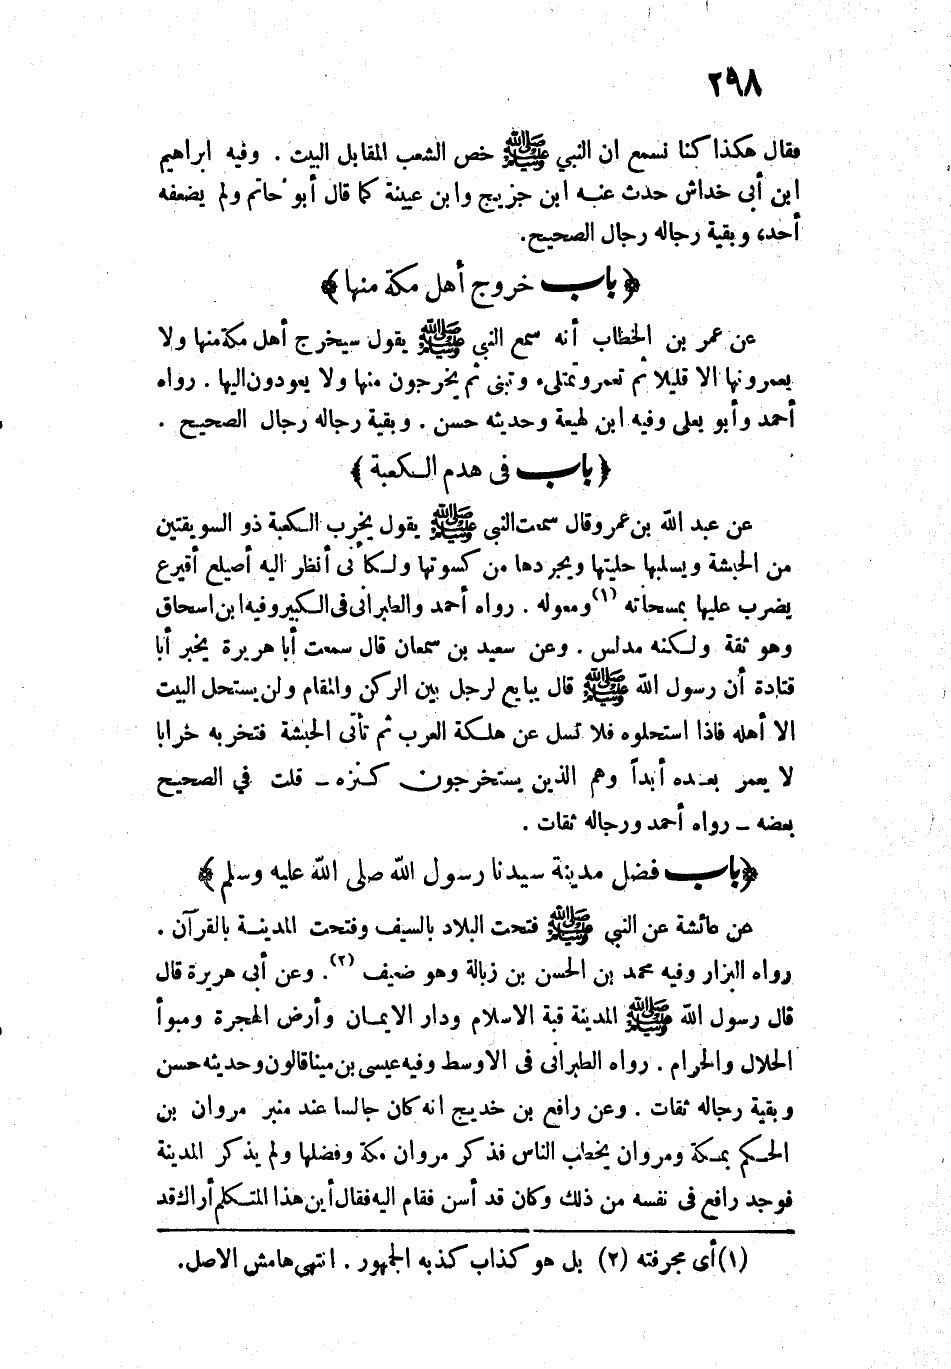 ٢٩٨
فقال هكذا كنا نسمع ان النبي ﷺ خص الشعب المقابل البيت . وفيه ابراهيم
ابن أبى خداش حدث عنه ابن جريج وابن عيينة كما قال أبو حاتم ولم يضعفه
أحد، وبقية رجاله رجال الصحيح.
﴿ باب خروج أهل مكة منها ﴾
عن عمر بن الخطاب أنه سمع النبي ﷺ يقول سيخرج أهل مكة منها ولا
يعمرونها الا قليلا ثم تعمر وتمتلىء وتبنى ثم يخرجون منها ولا يعودون اليها . رواه
أحمد وأبو يعلى وفيه ابن لهيعة وحديثه حسن . وبقية رجاله رجال الصحيح .
﴿ باب فى هدم الكعبة ﴾
عن عبد الله بن عمرو قال سمعت النبي ﷺ يقول يخرب الكعبة ذو السويقتين
من الحبشة ويسلبها حليتها ويجردها من كسوتها ولكأنى أنظر اليه أصيلع أفيدع
يضرب عليها بمسحاته (١) ومعوله . رواه أحمد والطبرانى فى الكبير وفيه ابن اسحاق
وهو ثقة ولكنه مدلس . وعن سعيد بن سمعان قال سمعت أبا هريرة يخبر أبا
قتادة أن رسول الله ﷺ قال يبايع لرجل بين الركن والمقام ولن يستحل البيت
الا أهله فاذا استحلوه فلا تسل عن هلكة العرب ثم تأتى الحبشة فتخربه خرابا
لا يعمر بعده أبداً وهم الذين يستخرجون كنزه ــ قلت في الصحيح
بعضه ــ رواه أحمد ورجاله ثقات .
﴿ باب فضل مدينة سيدنا رسول الله صلى الله عليه وسلم ﴾
عن عائشة عن النبي ﷺ فتحت البلاد بالسيف وفتحت المدينة بالقرآن .
رواه البزار وفيه محمد بن الحسن بن زبالة وهو ضعيف (٢) . وعن أبى هريرة قال
قال رسول الله ﷺ المدينة قبة الاسلام ودار الايمان وأرض الهجرة ومبوأ
الحلال والحرام . رواه الطبرانى فى الاوسط وفيه عيسى بن مينا قالون وحديثه حسن
وبقية رجاله ثقات . وعن رافع بن خديج انه كان جالسا عند منبر مروان بن
الحكم بمكة ومروان يخطب الناس فذكر مروان مكة وفضلها ولم يذكر المدينة
فوجد رافع فى نفسه من ذلك وكان قد أسن فقام اليه فقال أين هذا المتكلم أراك قد
(١) أى مجرفته (٢) بل هو كذاب كذبه الجمهور . انتهى هامش الاصل.